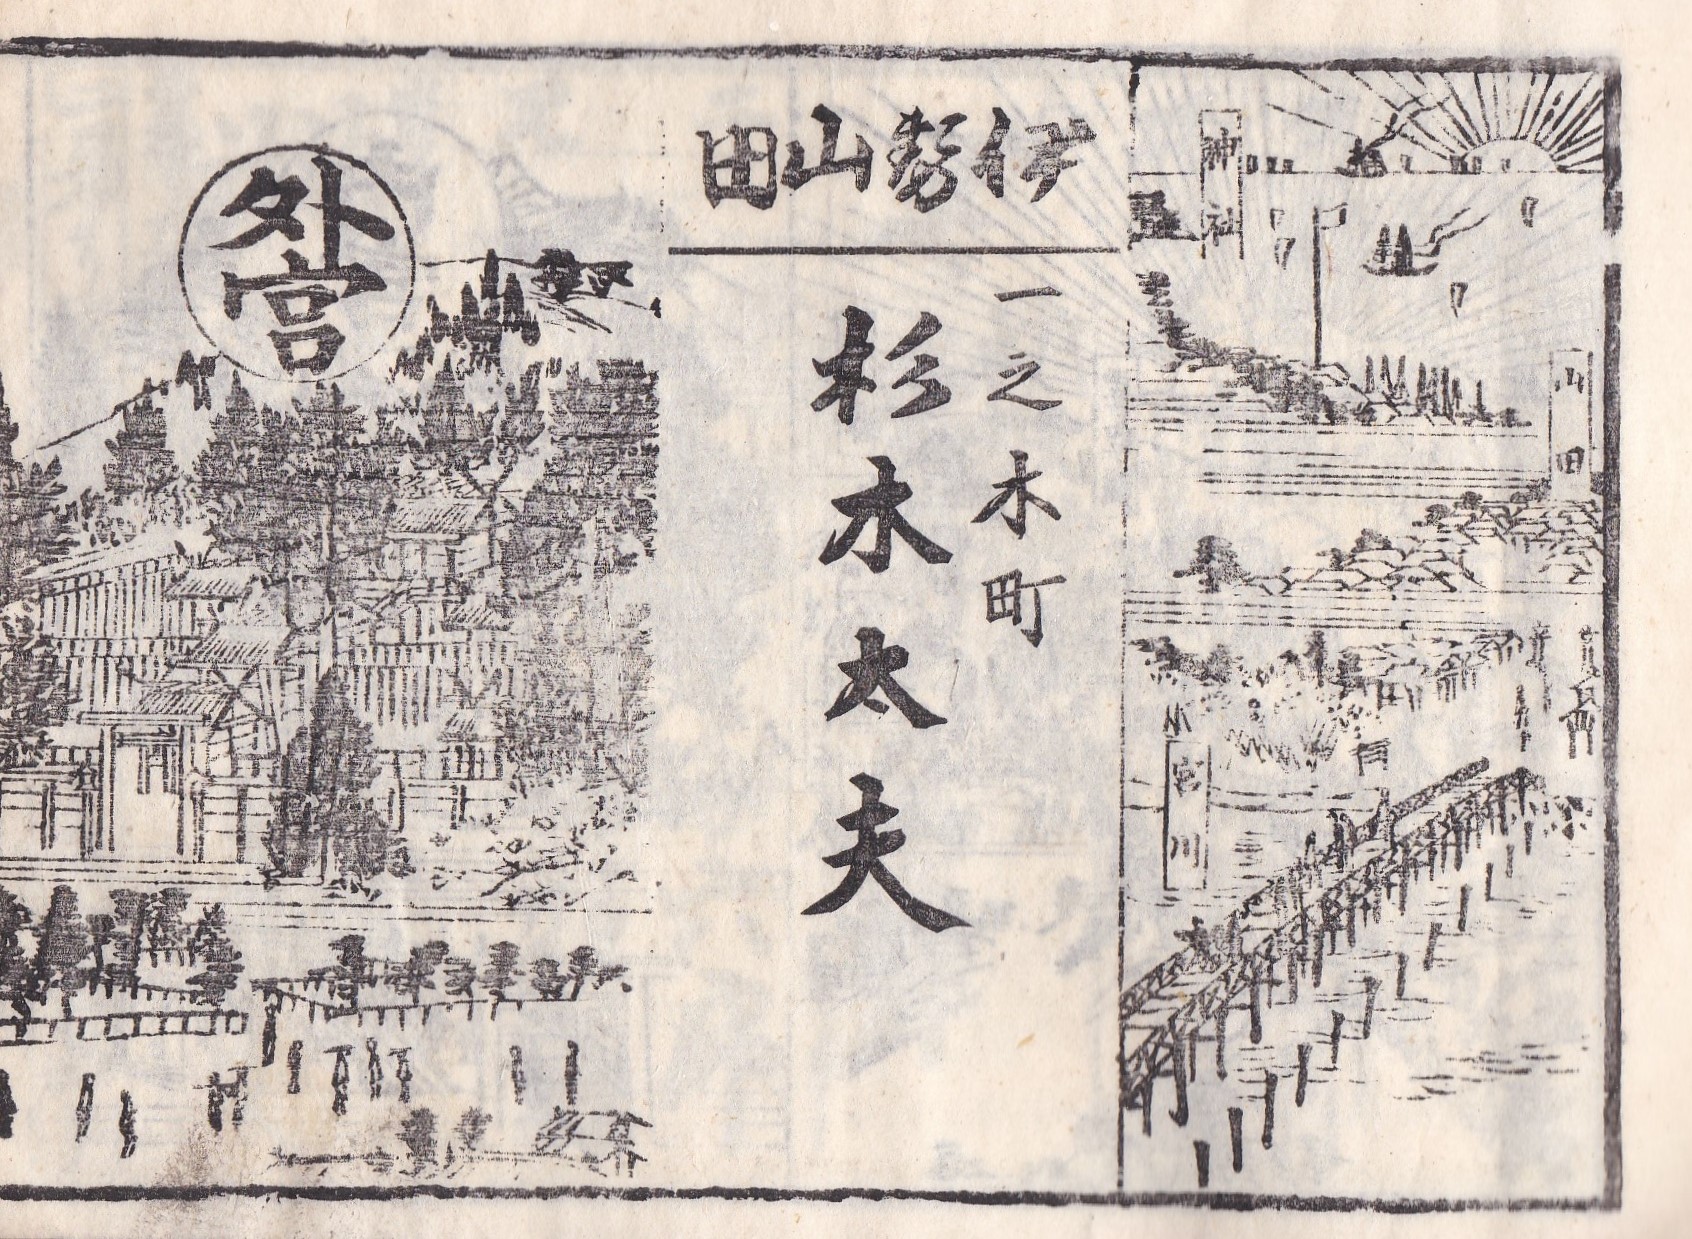 神社
山田
宮川
伊勢山田
一之木町
杉木太夫
外宮